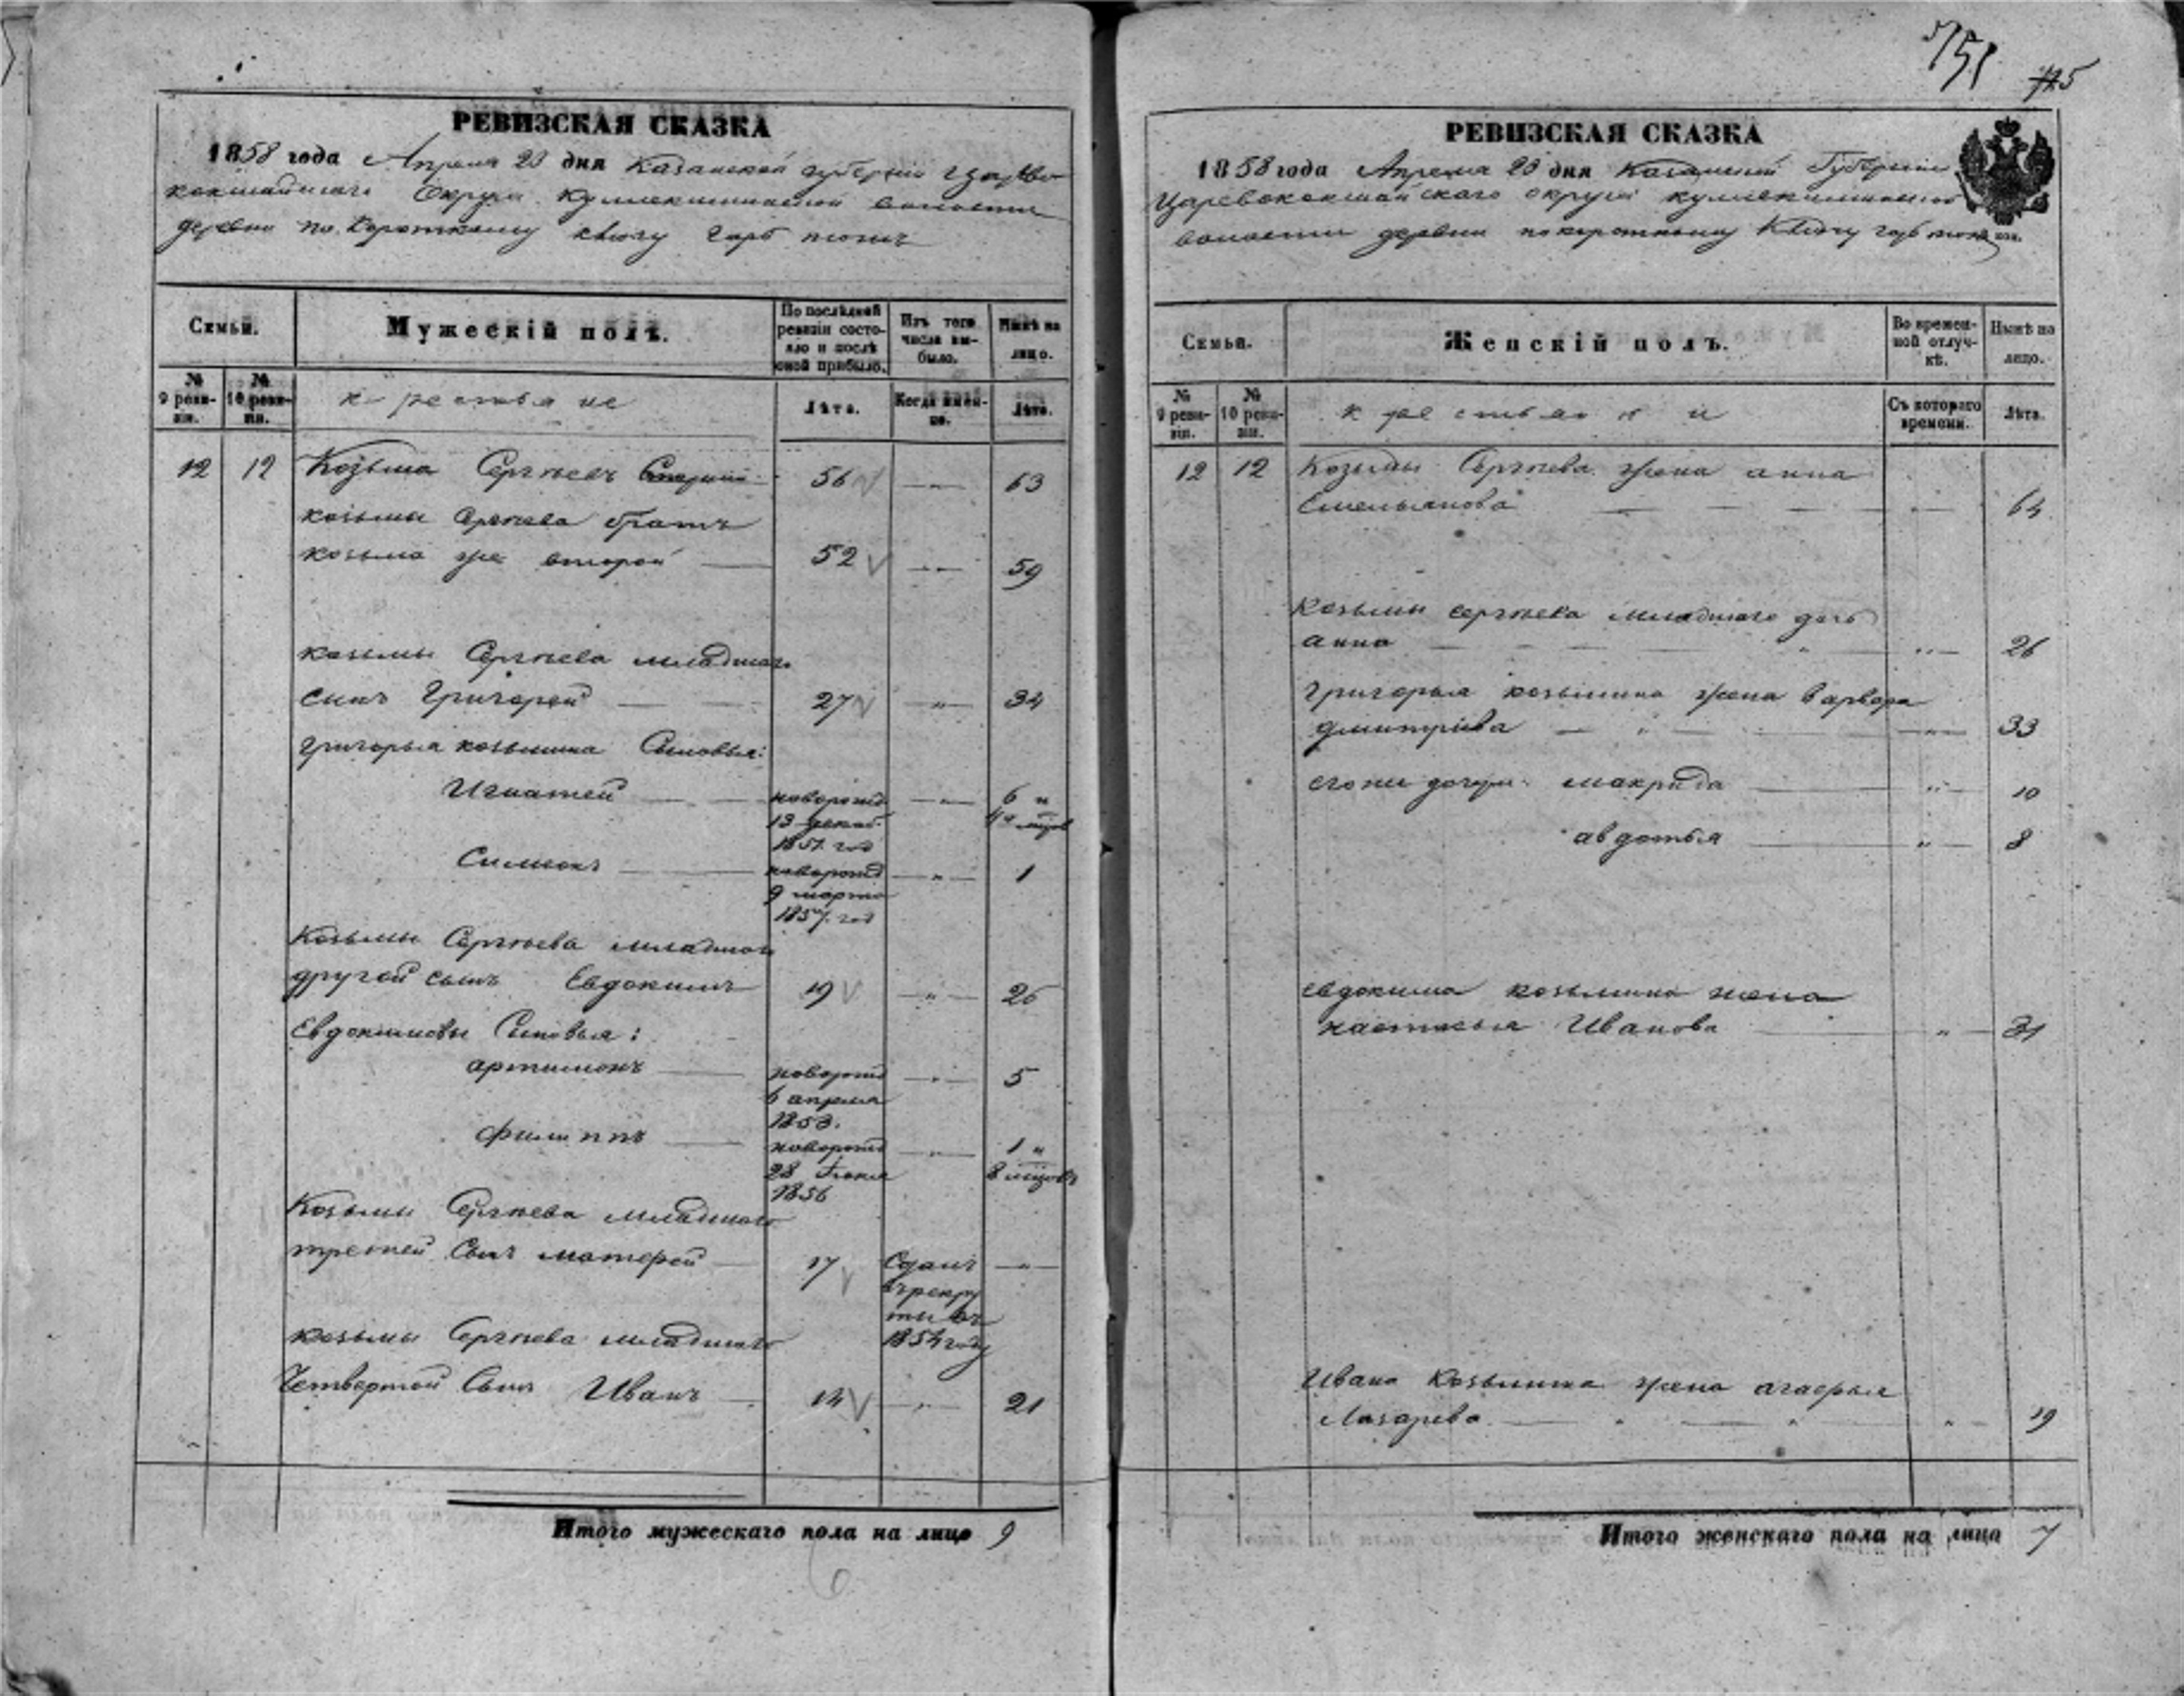 751
725
РЕВИЗСКАЯ СКАЗКА
1858 года Апреля 23 дня Казанской губерніи Царево
кокшайскаго Округа Кулле киминской волости
деревни по Короткому ключу
Семьи.
Мужескій полъ.
По послѣдней ревизіи состояло и послѣ оной прибыло.
Изъ того числа выбыло.
Нынѣ на лицо.
№ 9 ревизіи.
№ 10 ревизіи.
крестьяне
Лѣта.
Когда именно.
Лѣта.
12 12 Козьма Сергѣевъ Старший 56 — „ — 63
козьмы Сергѣева братъ
козьма же второй — 52 — „ — 59
козьмы Сергѣева младшаго
сынъ Григорей — 27 — „ — 34
григорья козьмина Сыновья:
Игнатей — новорожд — „ — 6 и
13 декаб. 4 мцов
1851 год
Симионъ — новорожд — „ — 1
9 марта
1857 год
Козьмы Сергѣева младшаго
другой сынъ Евдокимъ 19 — „ — 26
Евдокимовы Сыновья:
артимонъ — новорожд — „ — 5
6 апреля
1853.
филиппъ — новорожд — „ — 1 и
28 Іюня 8 мцовъ
1856
Козьмы Сергѣева младшаго
третей Сынъ матерей — 17 Сданъ — „ —
въ рекру
ты въ
1854 году
козьмы Сергѣева младшаго
Четвертой Сынъ Иванъ — 14 — „ — 21
Итого мужескаго пола на лицо 9
6
РЕВИЗСКАЯ СКАЗКА
1858 года Апреля 23 дня Казанской Губерніи
Царевококшайскаго округа кулле киминской
волости деревни по короткому Ключу
Семьи.
Женскій полъ.
Во временной отлучкѣ.
Нынѣ на лицо.
№ 9 ревизіи.
№ 10 ревизіи.
крестьянки
Съ котораго времени.
Лѣта.
12 12 Козьмы Сергѣева жена анна
Емельянова — — — — 64
Козьмы сергѣева младшаго дочь
анна — — — „ — 26
григорья козьмина жена варвара
дмитріева — „ — — „ — 33
его же дочери: макрида — „ — 10
авдотья — „ — 8
евдокима козьмина жена
настасья Иванова — „ — 31
Ивана Козьмина жена
Лазарева — „ — „ — „ — 19
Итого женскаго пола на лицо 7